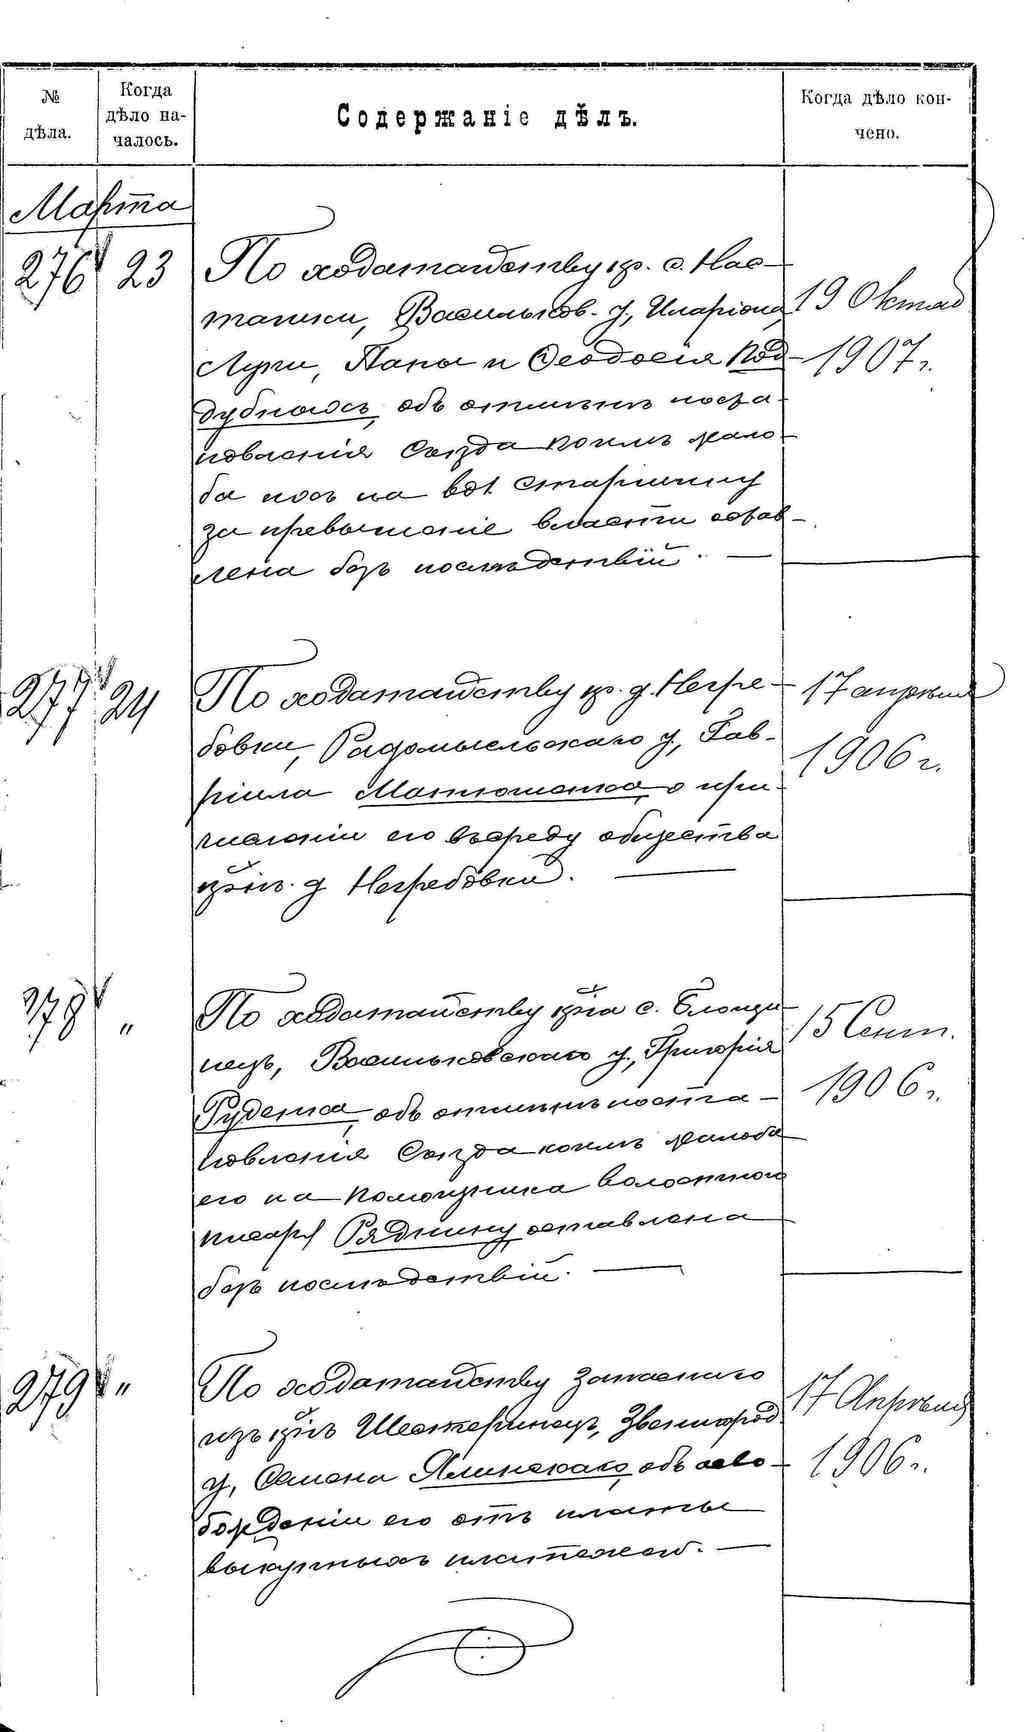 № дѣла.
Когда дѣло началось.
Содержаніе дѣлъ.
Когда дѣло кончено.
Марта
276 23
По ходатайству кр. с. Нас-
ташки, Васильков. у., Иларіона,
Луки, Пани и Ѳеодосія Под-
дубныхъ, объ отмѣнѣ поста-
новленія Съѣзда коимъ жало-
ба ихъ на вол. Старшину
за превышеніе власти остав-
лена безъ послѣдствій. —
19 Октяб
1907 г.
277 24
По ходатайству кр. д. Негре-
бовки, Радомысльскаго у., Гав-
ріила Матюшенка, о при-
численіи его въ среду общества
кр-нъ д. Негребовки. —
17 апрѣля
1906 г.
278 "
По ходатайству кр-на с. Блощи-
нецъ, Васильковскаго у., Григорія
Руденка, объ отмѣнѣ поста-
новленія Съѣзда коимъ жалоба
его на помощника волостного
писаря Ряднину оставлена
безъ послѣдствій. —
15 Сент.
1906 г.
279 "
По ходатайству запаснаго
изъ кр-нъ Шестеринецъ, Звенигород.
у., Семена Ялинскаго, объ осво-
божденіи его отъ платы
выкупныхъ платежей. —
17 Апрѣля
1906 г.